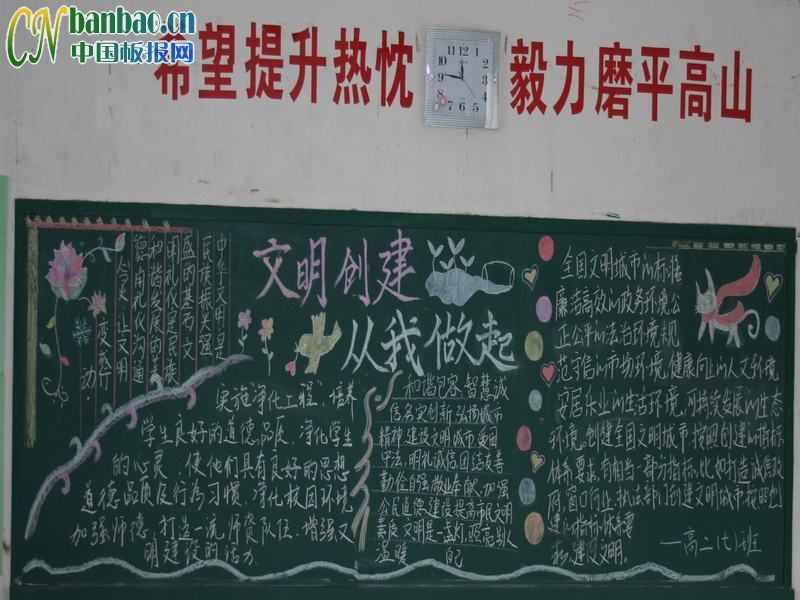 CNbanbao.cn
中国板报网
希望提升热忱 毅力磨平高山
11 12 1
10 2
9 3
8 4
7 6 5
文明创建
从我做起
中华文明是
民族振兴强
盛的基石文
明礼仪是民族
和谐发展的美
德用礼仪沟通
心灵 让文明
变成行
力
实施净化工程、培养
学生良好的道德品质、净化学生
的心灵、使他们具有良好的思想
道德品质及行为习惯、净化校园环境
加强师德、打造一流师资队伍、增强文
明建设的活力
和谐包容 智慧诚
信务实创新 弘扬城市
精神 建设文明城市 爱国
守法、明礼诚信、团结友善
勤俭自强敬业奉献、加强
公民道德建设提高市民文明
素质 文明是一盏灯、照亮别人
温暖 自己
全国文明城市的标准
廉洁高效的政务环境公
正公平的法治环境规
范守信的市场环境、健康向上的人文环境
安居乐业的生活环境、可持续发展的生态
环境、创建全国文明城市 按照创建的指标
体系要求、有相当一部分指标、比如打造诚信政
府、窗口行业、执法部门创建文明城市按照创
建的指标体系要
彩、建设文明。
—高二(七)班